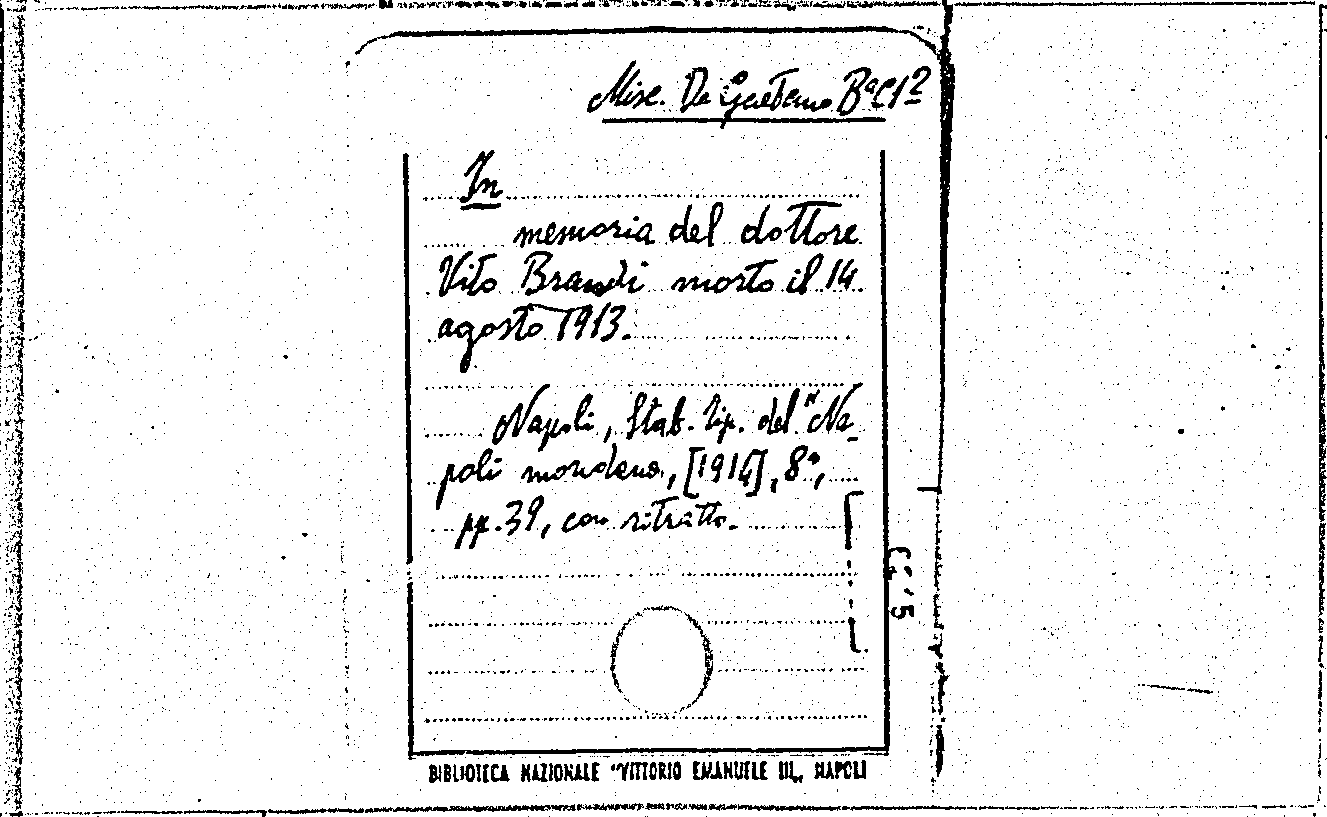 Misc. De Gaetano Bª C1²
In
memoria del dottore
Vito Brandi morto il 14
agosto 1913.
Napoli, Stab. tip. del "Na_
poli moderno, [1914], 8º,
pp. 39, con ritratto.
BIBLIOTECA NAZIONALE "VITTORIO EMANUELE III„ NAPOLI